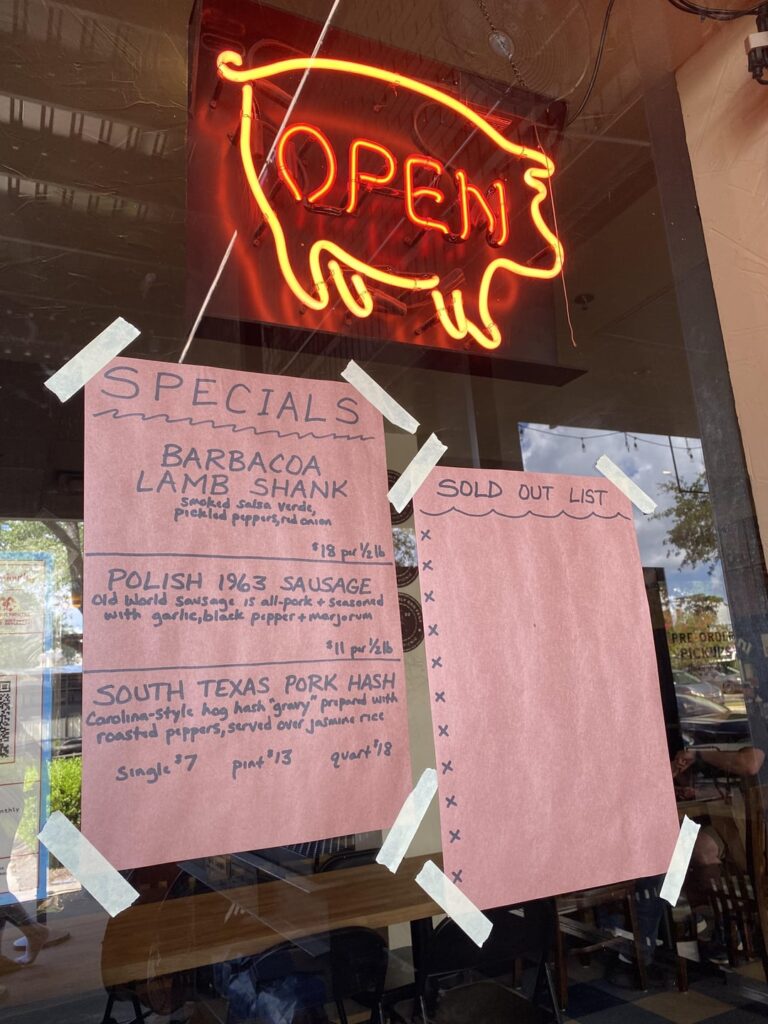 OPEN
SPECIALS
BARBACOA
LAMB SHANK
smoked salsa verde,
pickled peppers, red onion
$18 per 1/2 lb
POLISH 1963 SAUSAGE
Old World sausage is all-pork + seasoned
with garlic, black pepper + marjorum
$11 per 1/2 lb
SOUTH TEXAS PORK HASH
Carolina-style hog hash "gravy" prepared with
roasted peppers, served over jasmine rice
single $7 pint $13 quart $18
SOLD OUT LIST
x
x
x
x
x
x
x
x
x
x
x
PRE ORDER
PICKUPS